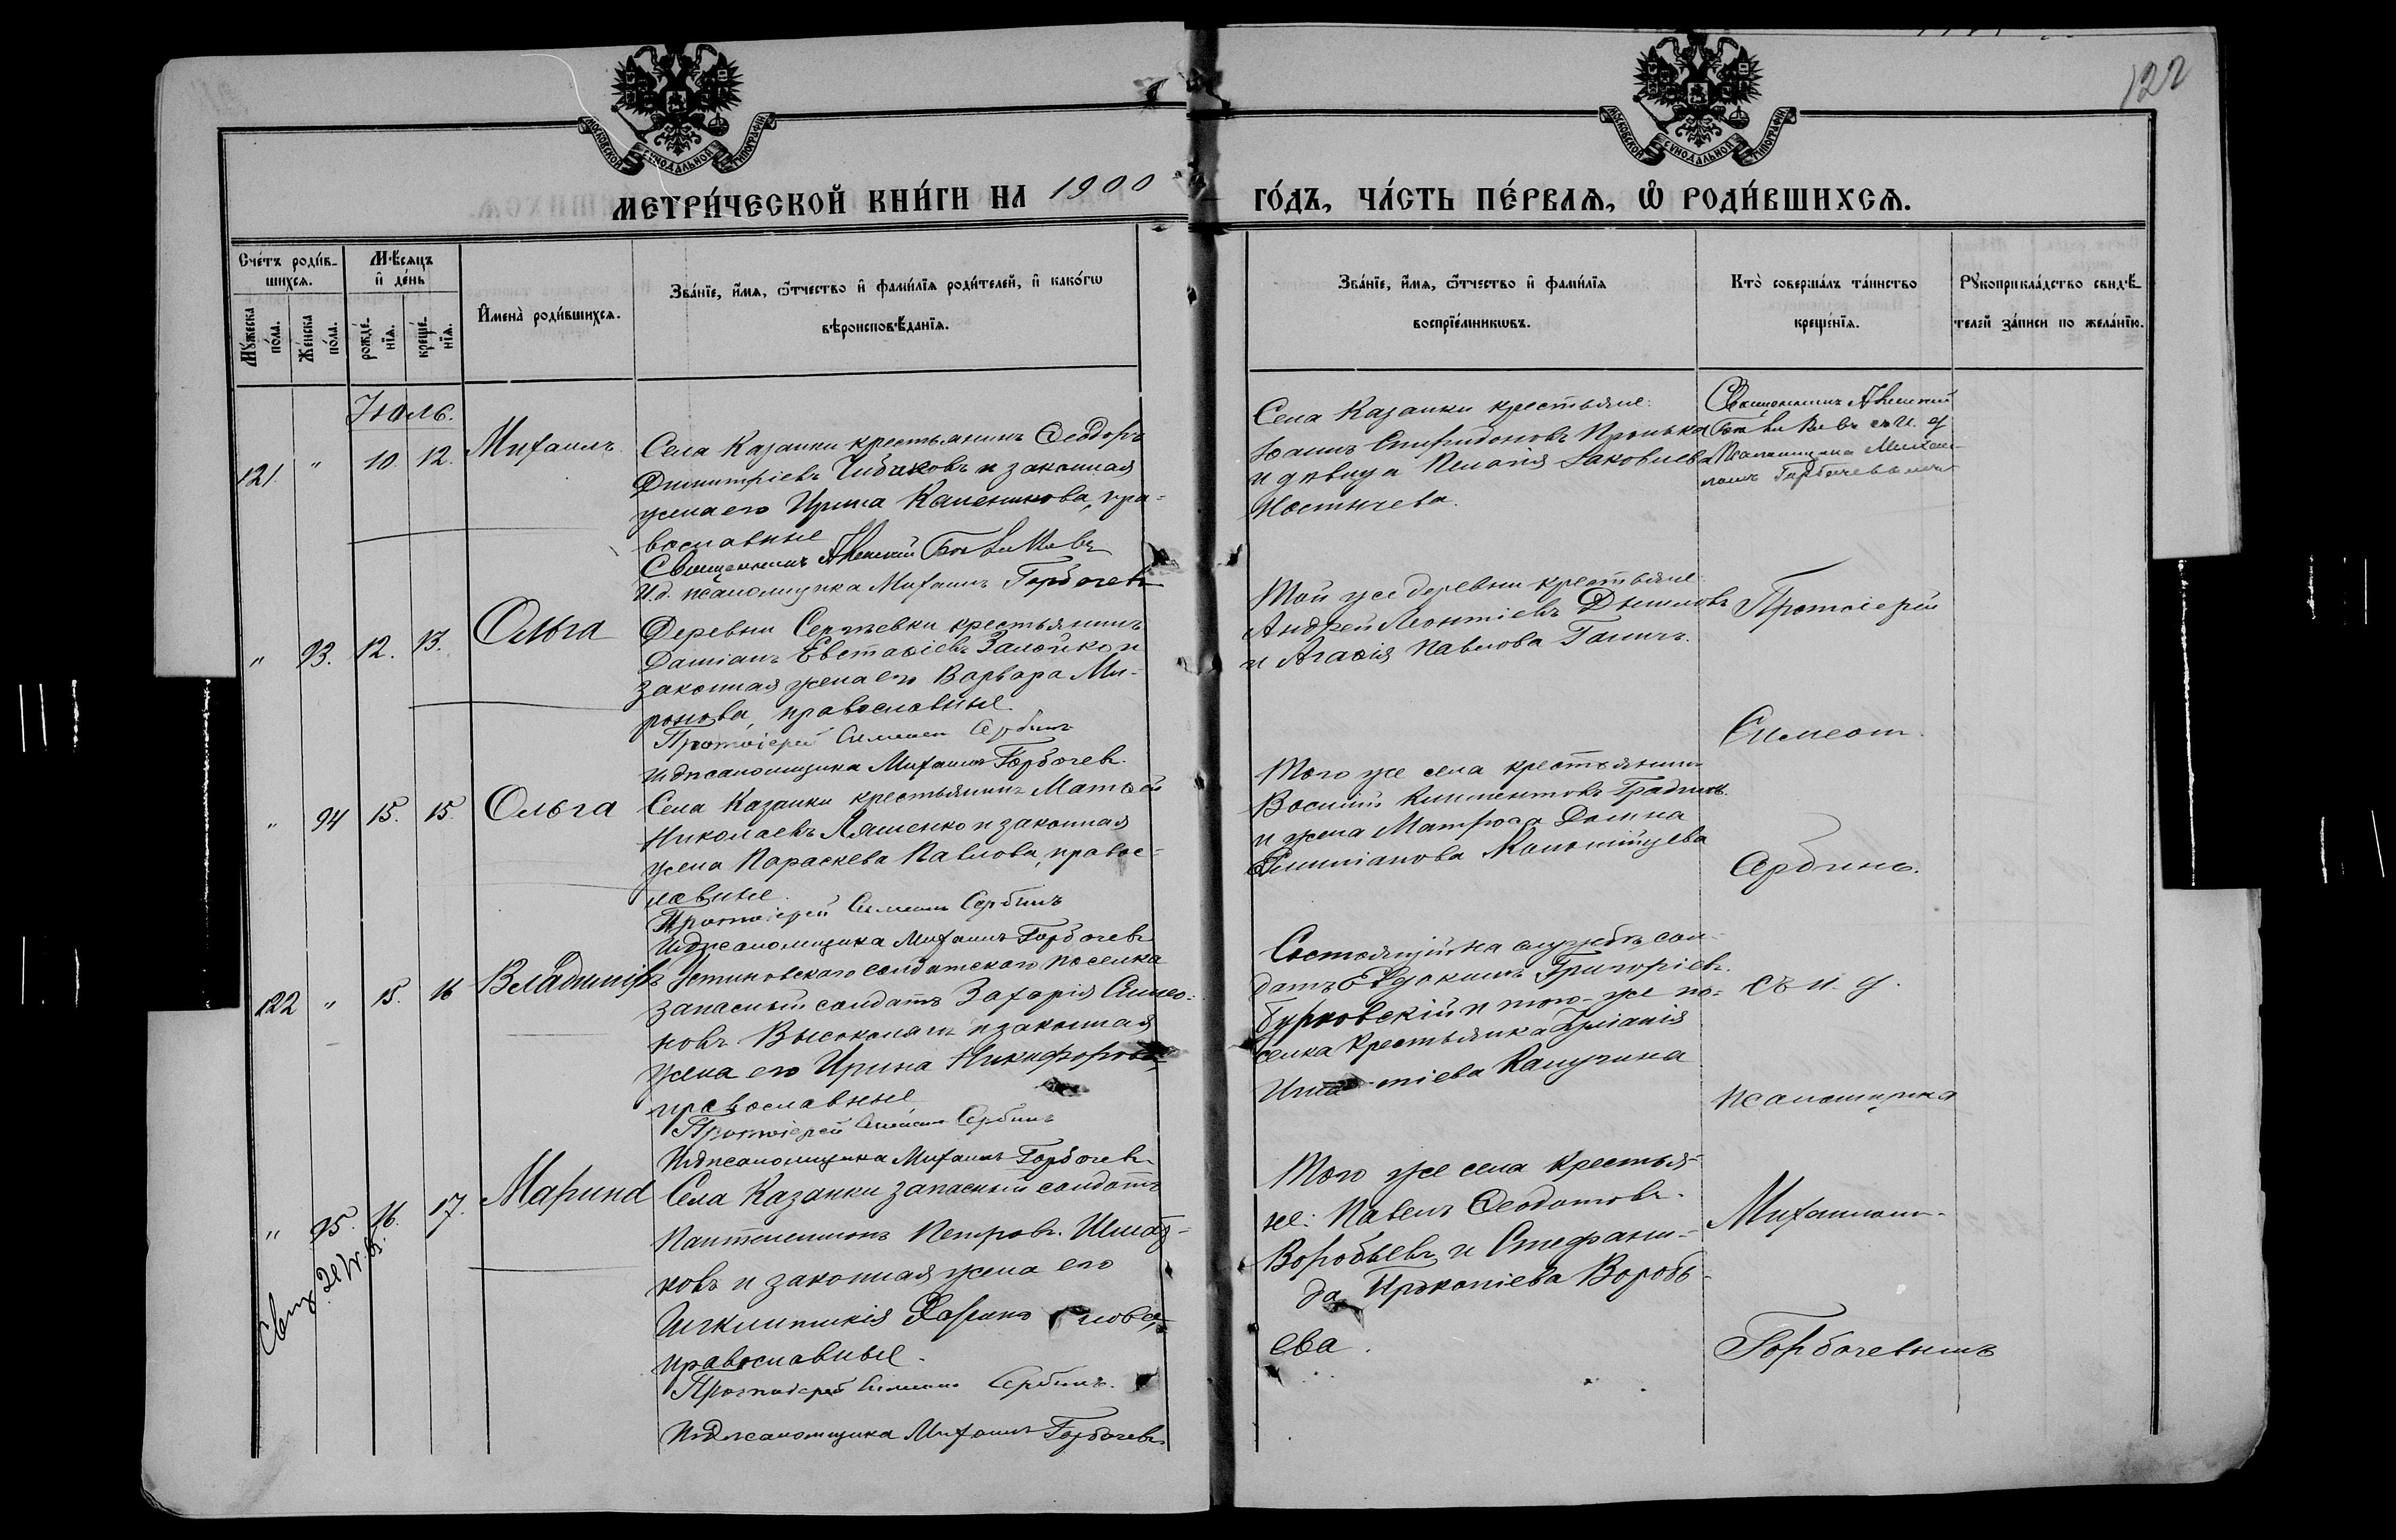 122
МОСКОВСКОЙ СѴНОДАЛЬНОЙ ТИПОГРАФІИ
МОСКОВСКОЙ СѴНОДАЛЬНОЙ ТИПОГРАФІИ
МЕТРИ́ЧЕСКОЙ КНИ́ГИ НА 1900
ГО́ДЪ, ЧА́СТЬ ПЕ́РВАѦ, Ѿ РОДИ́ВШИХСѦ.
Сче́тъ роди́в-
шихсѧ.
Мꙋ́жеска по́ла.
Же́нска по́ла.
Мѣ́сѧцъ
и҆ де́нь
рожде́-
нїѧ.
креще́-
нїѧ.
И҆мена̀ роди́вшихсѧ.
Зва́нїе, и҆́мѧ, ѻ҆́тчество и҆ фами́лїѧ роди́телей, и҆ како́гѡ
вѣроисповѣ́данїѧ.
Зва́нїе, и҆́мѧ, ѻ҆́тчество и҆ фами́лїѧ
воспрїе́мникѡвъ.
Кто̀ соверша́лъ та́инство
креще́нїѧ.
Рꙋкоприкла́дство свидѣ́-
телей за́писи по жела́нїю.
Іюль.
121. " 10. 12. Михаилъ.
Села Казанки крестьянинъ Ѳеодоръ
Димитріевъ Чибиковъ и законная
жена его Ирина Каленикова, пра-
вославные
Священникъ Алексій
И.д. псаломщика Михаилъ Горбачевъ
Села Казанки крестьяне:
Іоаннъ Спиридоновъ Пронька
и дѣвица Пелагія Іаковлева
Костычева.
Священникъ Алексій
съ и. д.
Псаломщика Михаи-
ломъ Горбачевымъ
" 93. 12. 13. Ольга
Деревни Сергѣевки крестьянинъ
Даміанъ Евстаѳіевъ Залойко и
законная жена его Варвара Ми-
ронова, православные.
Протоіерей Симеонъ Сербинъ
И д псаломщика Михаилъ Горбачевъ.
Той же деревни крестьяне:
Андрей Леонтіевъ Дышловъ
и Агаѳія Павлова Ганичъ.
Протоіерей
" 94 15. 15. Ольга
Села Казанки крестьянинъ Матѳей
Николаевъ Ляшенко и законная
жена Параскева Павлова, правос-
лавные.
Протоіерей Симеонъ Сербинъ
И д псаломщика Михаилъ Горбачевъ
Того же села крестьянинъ
Василій Климентовъ
и жена Матроса Домна
Емиліанова Коломійцева
Симеонъ
Сербинъ.
122 " 15. 16 Владиміръ
Устиновскаго солдатскаго поселка
запасный солдатъ Захарія Симео-
новъ Высоколянъ и законная
жена его Ирина Никифорова,
православные
Протоіерей Симеонъ Сербинъ
И д псаломщика Михаилъ Горбачевъ
Состоящій на службѣ сол-
датъ Евдокимъ Григоріевъ.
Бурковскій и того-же по-
селка крестьянка Іуліанія
Игнатіева Калугина
съ и. д.
псаломщика
" 95. 16. 17. Марина
Села Казанки запасный солдатъ
Пантелеимонъ Петровъ
ковъ и законная жена его
православные.
Протоіерей Симеонъ Сербинъ.
И д псаломщика Михаилъ Горбачевъ
Того же села крестья-
не: Павелъ Ѳеодотовъ
Воробьевъ и Стефани-
да Прокопіева Воробь-
ева.
Михаиломъ
Горбачевымъ